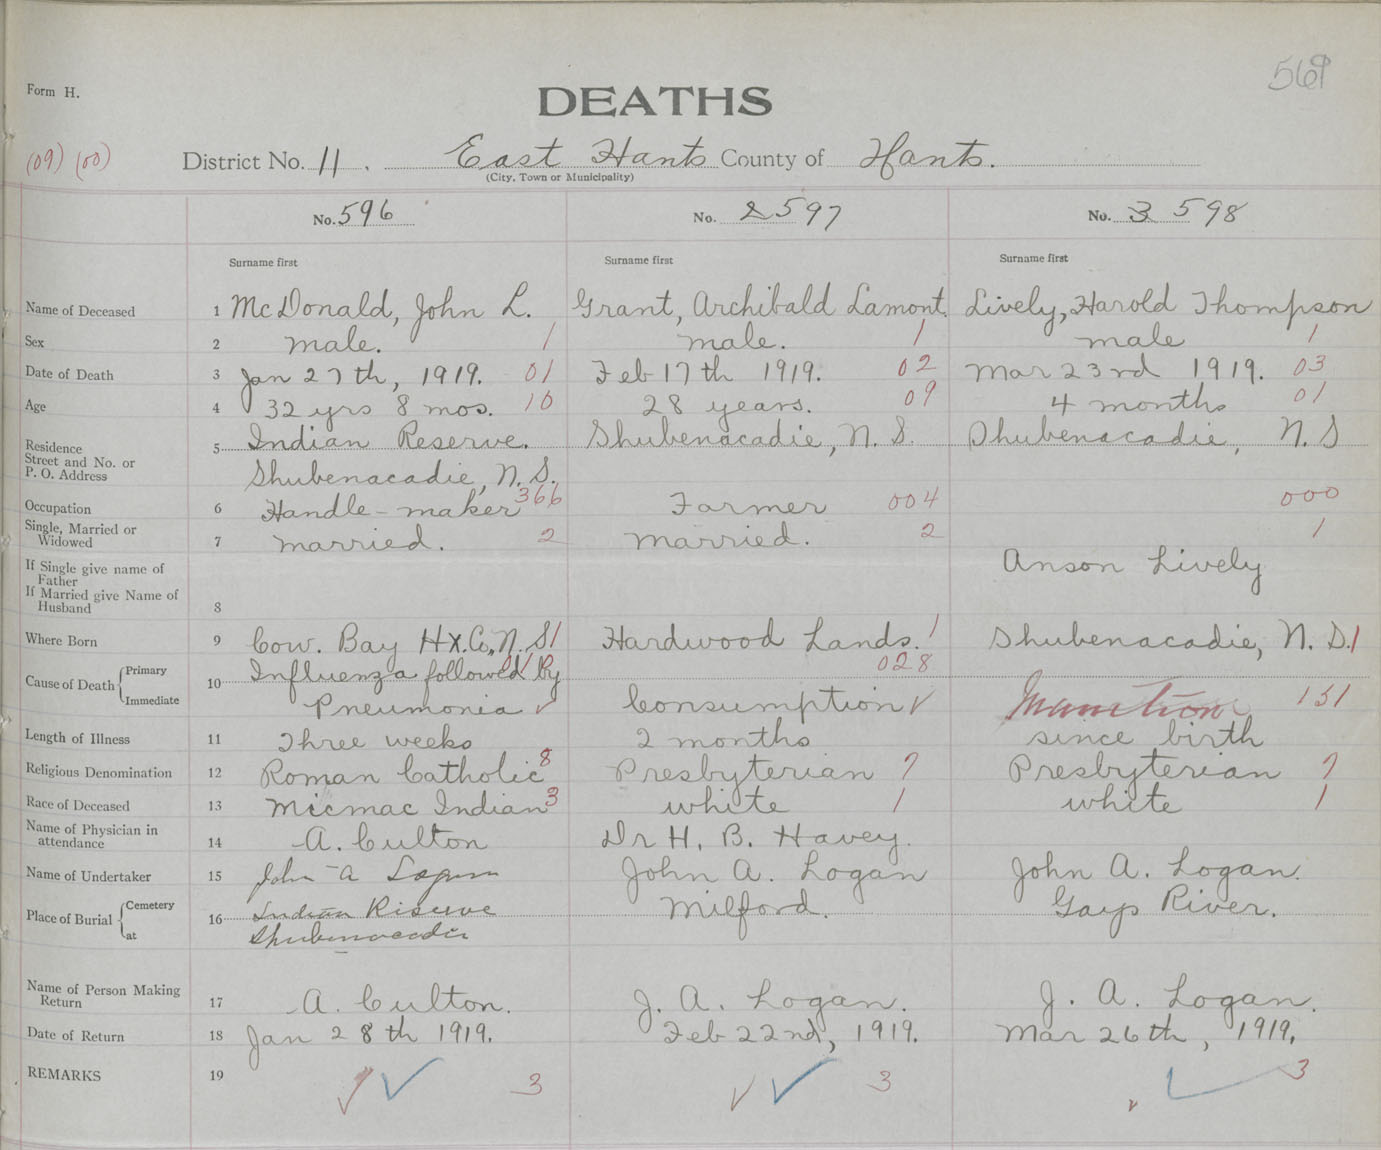 569
Form H.
DEATHS
(09) (00)
District No. 11. East Hants County of Hants.
(City, Town or Municipality)
No. 596 No. 2 597 No. 3 598
Surname first Surname first Surname first
Name of Deceased 1 McDonald, John L. Grant, Archibald Lamont. Lively, Harold Thompson
Sex 2 male. 1 male. 1 male 1
Date of Death 3 Jan 27th, 1919. 01 Feb 17th 1919. 02 Mar 23rd 1919. 03
Age 4 32 yrs 8 mos. 10 28 years. 09 4 months 01
Residence
Street and No. or
P. O. Address
5 Indian Reserve. Shubenacadie, N. S. Shubenacadie, N. S
Shubenacadie, N. S.
Occupation 6 Handle-maker 366 Farmer 004 000
Single, Married or
Widowed
7 married. 2 married. 2 1
If Single give name of
Father
If Married give Name of
Husband
8 Anson Lively
Where Born 9 Cow. Bay Hx. Co., N. S 1 Hardwood Lands. 1 Shubenacadie, N. S. 1
Cause of Death Primary
Immediate
10 Influenza followed by 028
Pneumonia Consumption 151
Length of Illness 11 Three weeks 2 months since birth
Religious Denomination 12 Roman Catholic 8 Presbyterian 7 Presbyterian 7
Race of Deceased 13 Micmac Indian 3 white 1 white 1
Name of Physician in
attendance
14 A. Culton Dr H. B. Havey.
Name of Undertaker 15 John A Logan John A. Logan John A. Logan.
Place of Burial Cemetery
at
16 Indian Riserve Milford. Gays River.
Shubenacadie
Name of Person Making
Return
17 A. Culton. J. A. Logan. J. A. Logan.
Date of Return 18 Jan 28th 1919. Feb 22nd, 1919. Mar 26th, 1919.
REMARKS 19 3 3 3